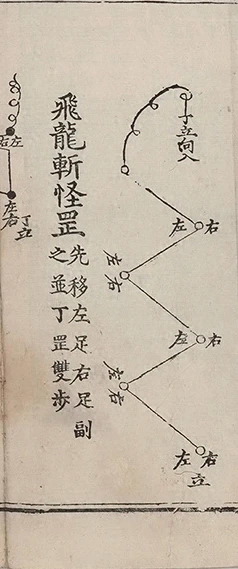 丁立向入
右
左
左
右
右
左
左
右
右
左
立
飛龍斬怪罡
先移左足右足副
之並丁罡雙步
左
右
左
右
丁立